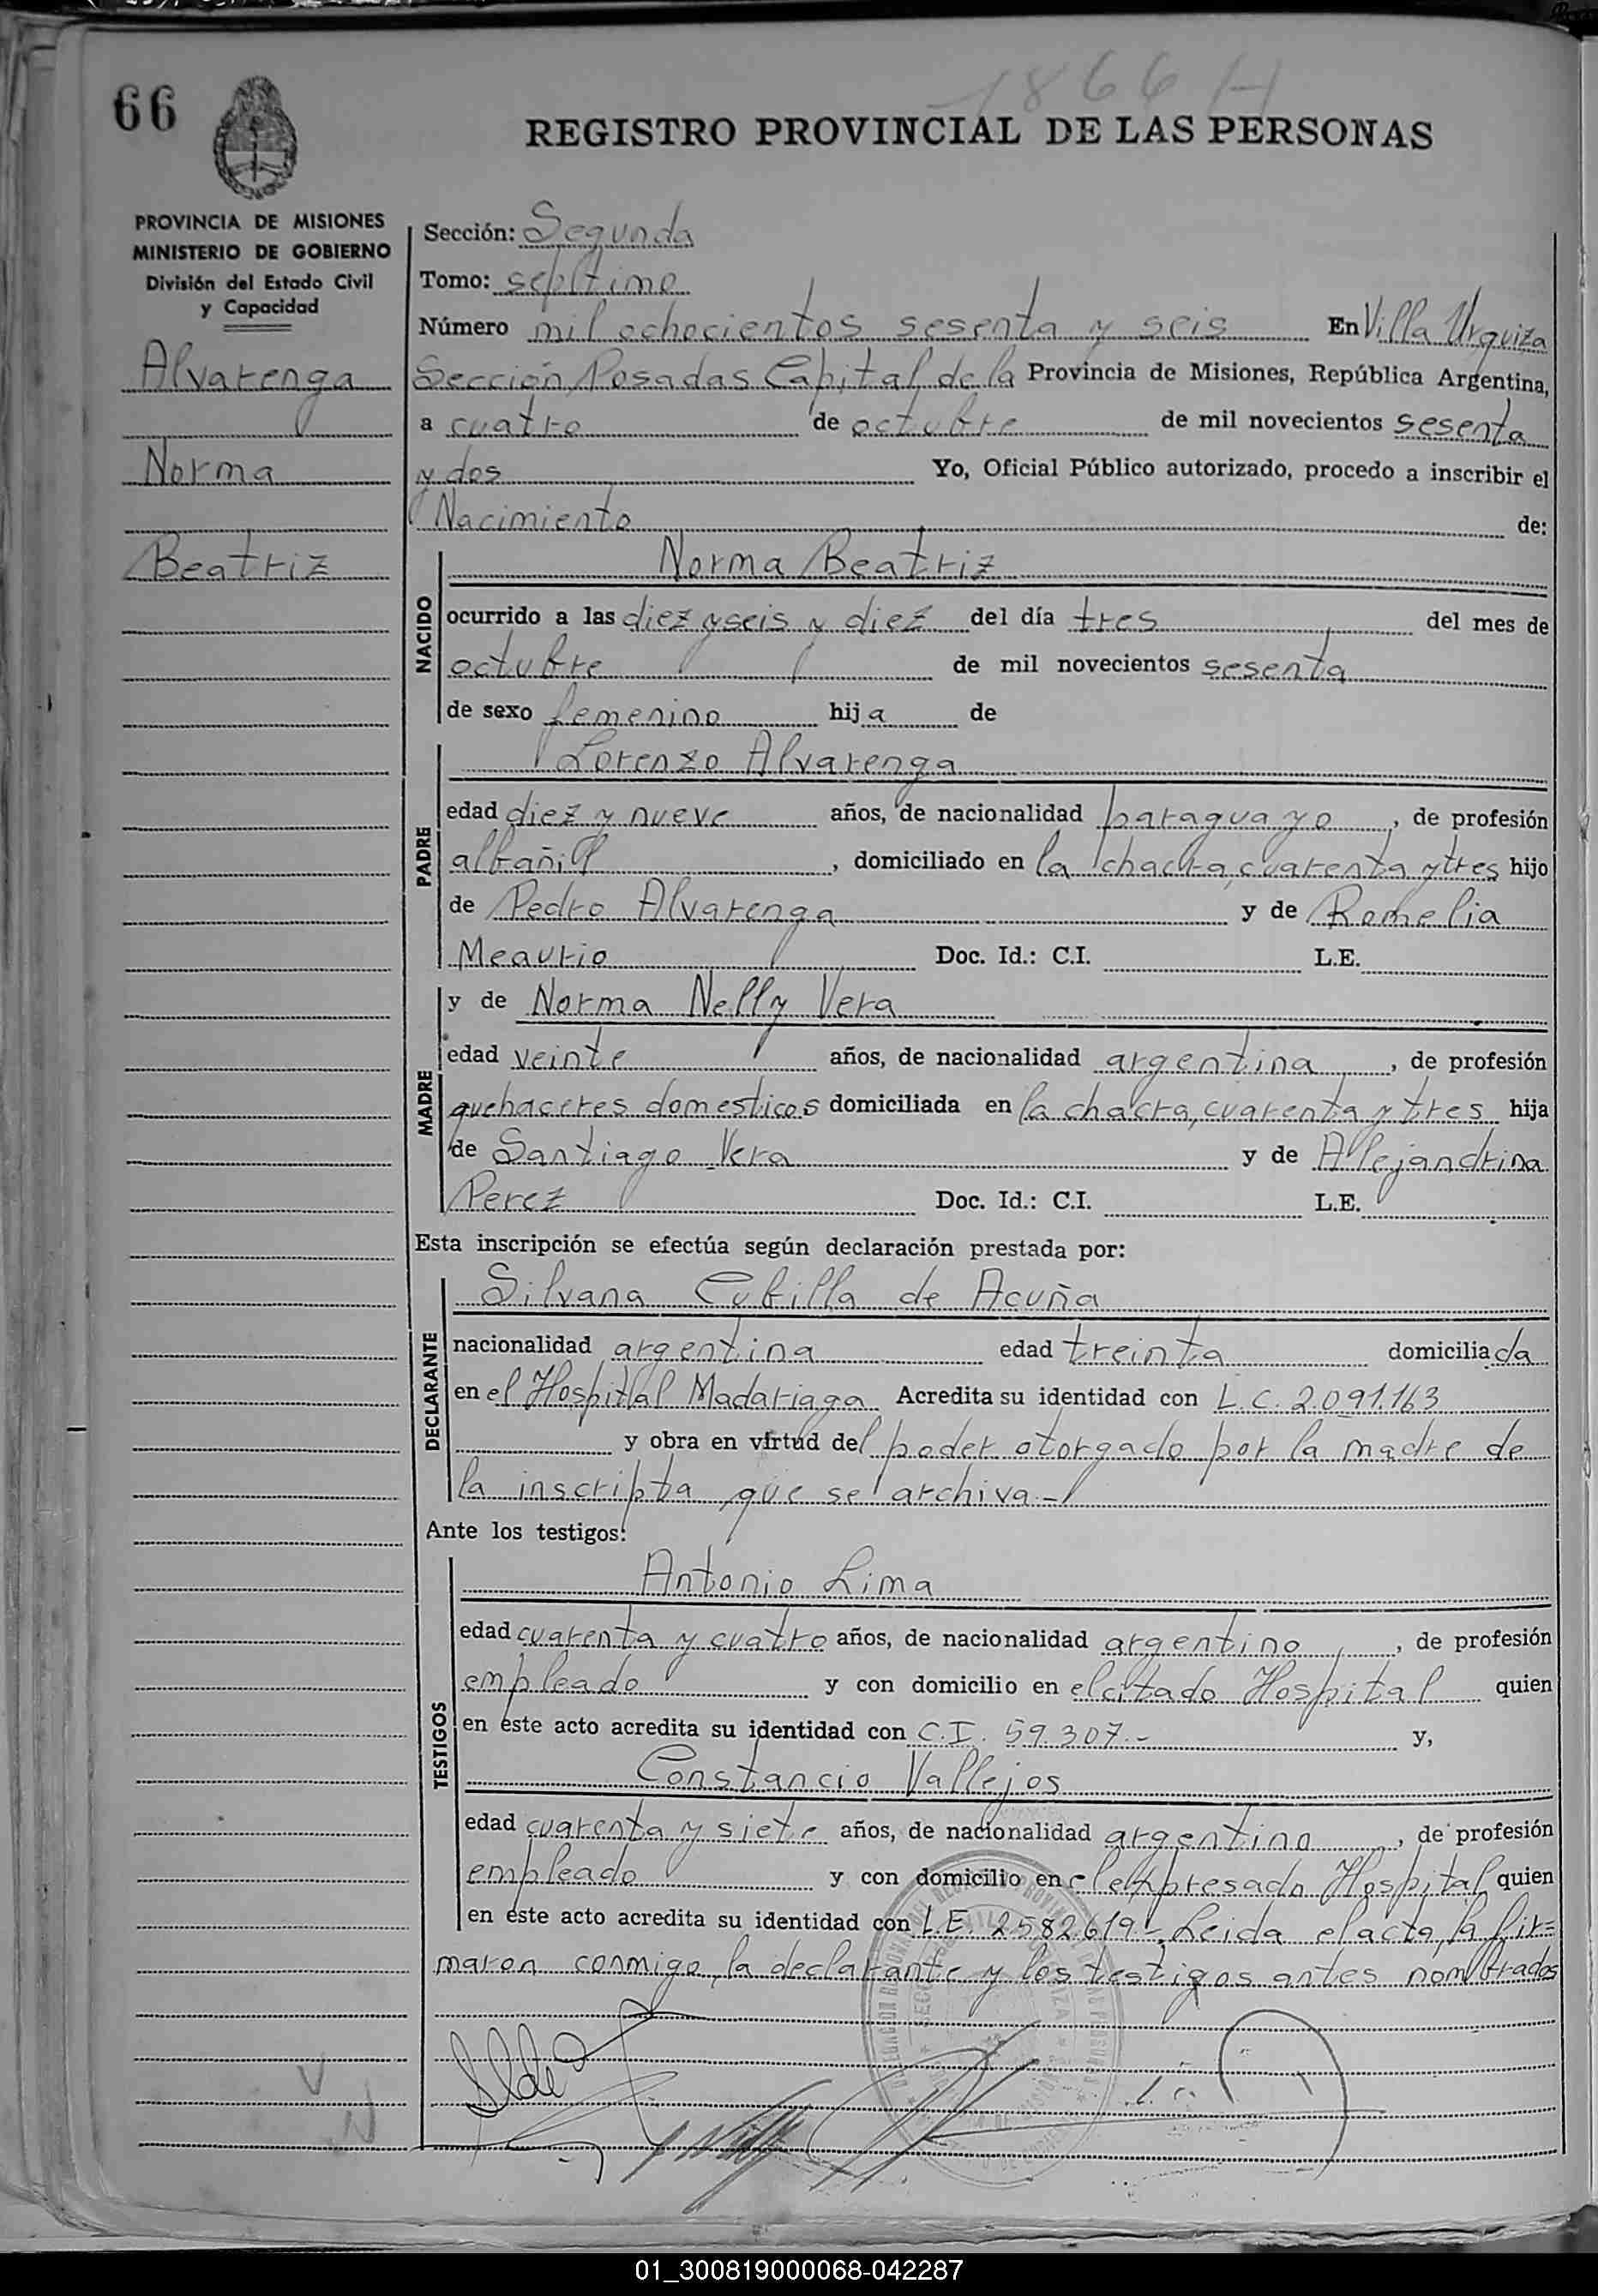 1866 H
66
REGISTRO PROVINCIAL DE LAS PERSONAS
PROVINCIA DE MISIONES
MINISTERIO DE GOBIERNO
División del Estado Civil
y Capacidad
Alvarenga
Norma
Beatriz
Sección: Segunda
Tomo: septimo
Número mil ochocientos sesenta y seis En Villa Urquiza
Sección, Posadas Capital de la Provincia de Misiones, República Argentina,
a cuatro de octubre de mil novecientos sesenta
y dos Yo, Oficial Público autorizado, procedo a inscribir el
Nacimiento de:
NACIDO
Norma Beatriz
ocurrido a las diez y seis y diez del día tres del mes de
octubre de mil novecientos sesenta
de sexo femenino hija de
PADRE
Lorenzo Alvarenga
edad diez y nueve años, de nacionalidad paraguayo, de profesión
albañil, domiciliado en la chacra cuarenta y tres hijo
de Pedro Alvarenga y de Romelia
Meaurio Doc. Id.: C.I. L.E.
MADRE
y de Norma Nelly Vera
edad veinte años, de nacionalidad argentina, de profesión
quehaceres domesticos domiciliada en la chacra, cuarenta y tres hija
de Santiago Vera y de Alejandrina
Perez Doc. Id.: C.I. L.E.
Esta inscripción se efectúa según declaración prestada por:
DECLARANTE
Silvana Cubilla de Acuña
nacionalidad argentina edad treinta domiciliada
en el Hospital Madariaga Acredita su identidad con L.C. 2.091.163
y obra en virtud del poder otorgado por la madre de
la inscripta que se archiva.-
Ante los testigos:
TESTIGOS
Antonio Lima
edad cuarenta y cuatro años, de nacionalidad argentino, de profesión
empleado y con domicilio en el citado Hospital quien
en este acto acredita su identidad con C.I. 59.307.- y,
Constancio Vallejos
edad cuarenta y siete años, de nacionalidad argentino, de profesión
empleado y con domicilio en el expresado Hospital quien
en este acto acredita su identidad con L.E. 2582619.- Leida el acta, la fir=
maron conmigo, la declarante y los testigos antes nombrados
01_300819000068-042287